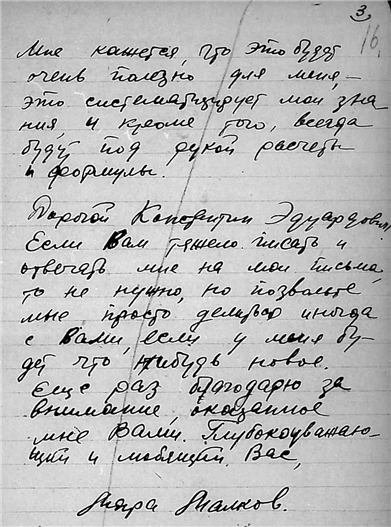 3
16
Мне кажется, что это будет
очень полезно для меня, –
это систематизирует мои зна
ния, и кроме того, всегда
будут под рукой расчеты
и формулы.
Дорогой Константин Эдуардович!
Если Вам тяжело писать и
отвечать мне на мои письма,
то не нужно, но позвольте
мне просто делиться иногда
с Вами, если у меня бу-
дет что нибудь новое.
Еще раз благодарю за
внимание, оказанное
мне Вами. Глубокоуважаю-
щий и любящий Вас,
Малков.